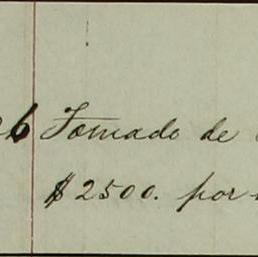 26 Tomado de
$2500. por